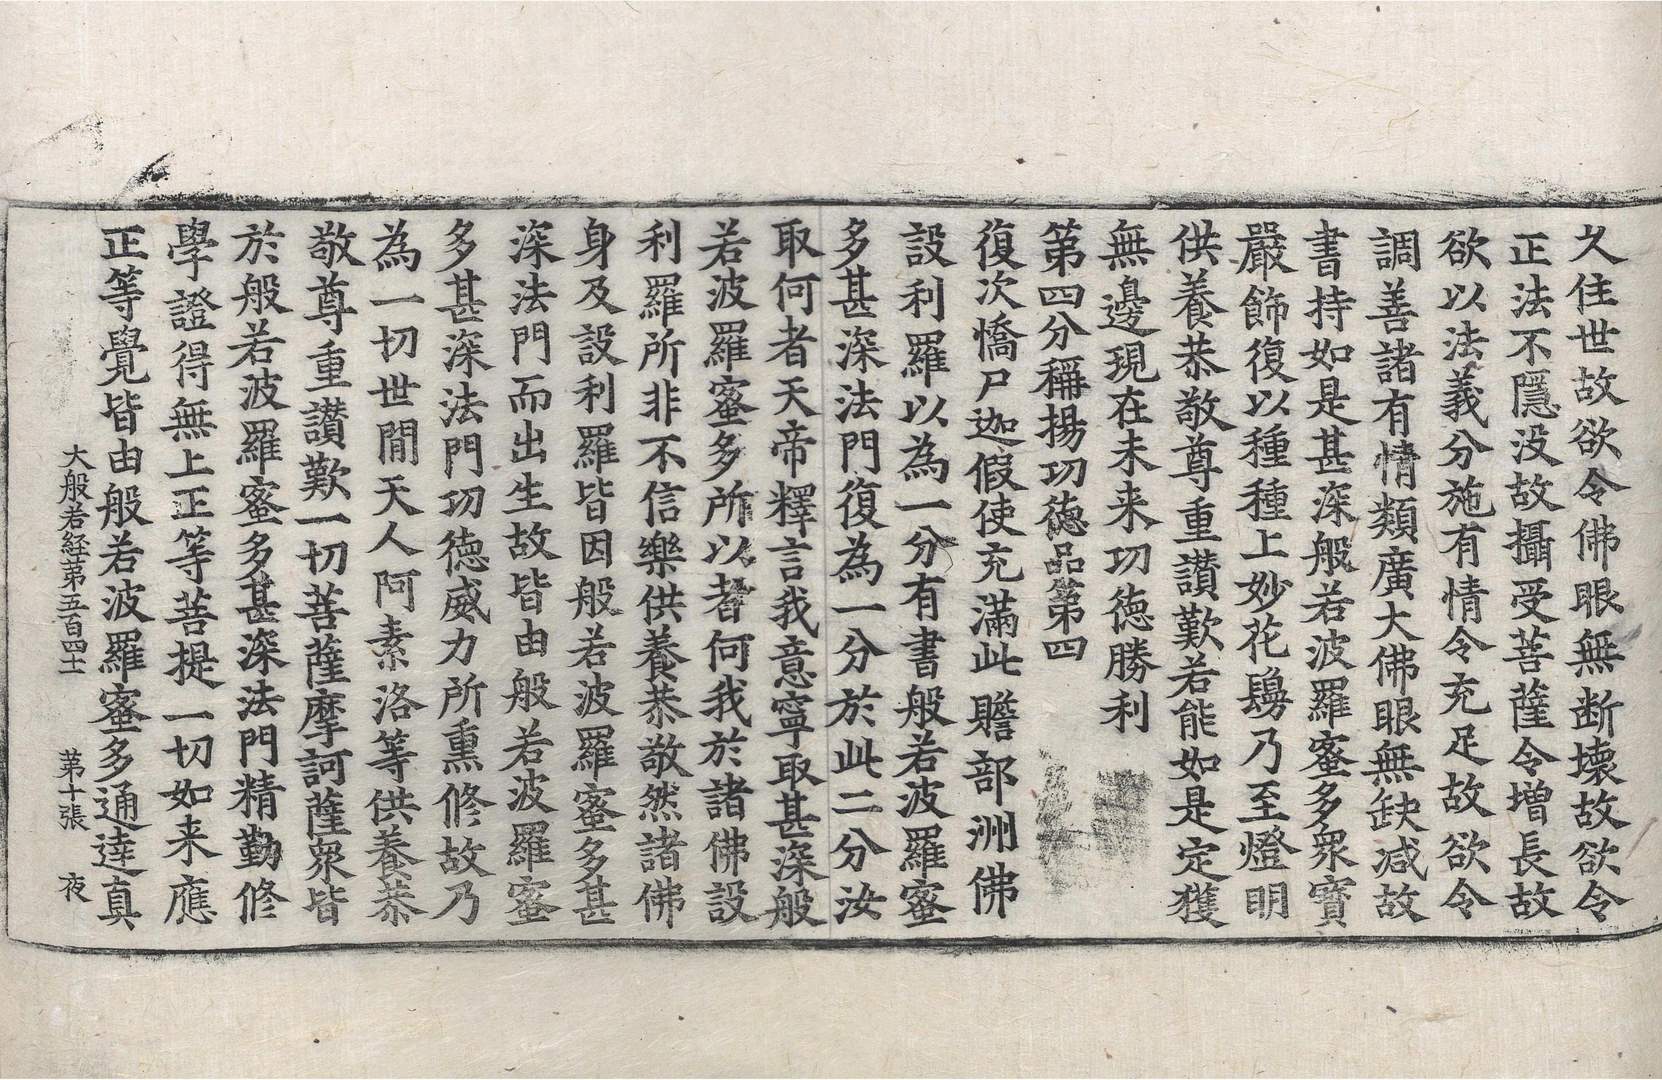 久住世故欲令佛眼無断壞故欲令
正法不隱没故攝受菩薩令增長故
欲以法義分施有情令充足故欲令
調善諸有情類廣大佛眼無缺减故
書持如是甚深般若波羅蜜多衆寶
嚴飾復以種種上妙花鬘乃至燈明
供養恭敬尊重讚歎若能如是定獲
無邊現在未来功德勝利
第四分稱揚功德品第四
復次憍尸迦假使充滿此贍部洲佛
設利羅以為一分有書般若波羅蜜
多甚深法門復為一分於此二分汝
取何者天帝釋言我意寧取甚深般
若波羅蜜多所以者何我於諸佛設
利羅所非不信樂供養恭敬然諸佛
身及設利羅皆因般若波羅蜜多甚
深法門而出生故皆由般若波羅蜜
多甚深法門功德威力所熏修故乃
為一切世間天人阿素洛等供養恭
敬尊重讚歎一切菩薩摩訶薩衆皆
於般若波羅蜜多甚深法門精勤修
學證得無上正等菩提一切如来應
正等覺皆由般若波羅蜜多通達真
大般若經第五百四十 第十張 夜